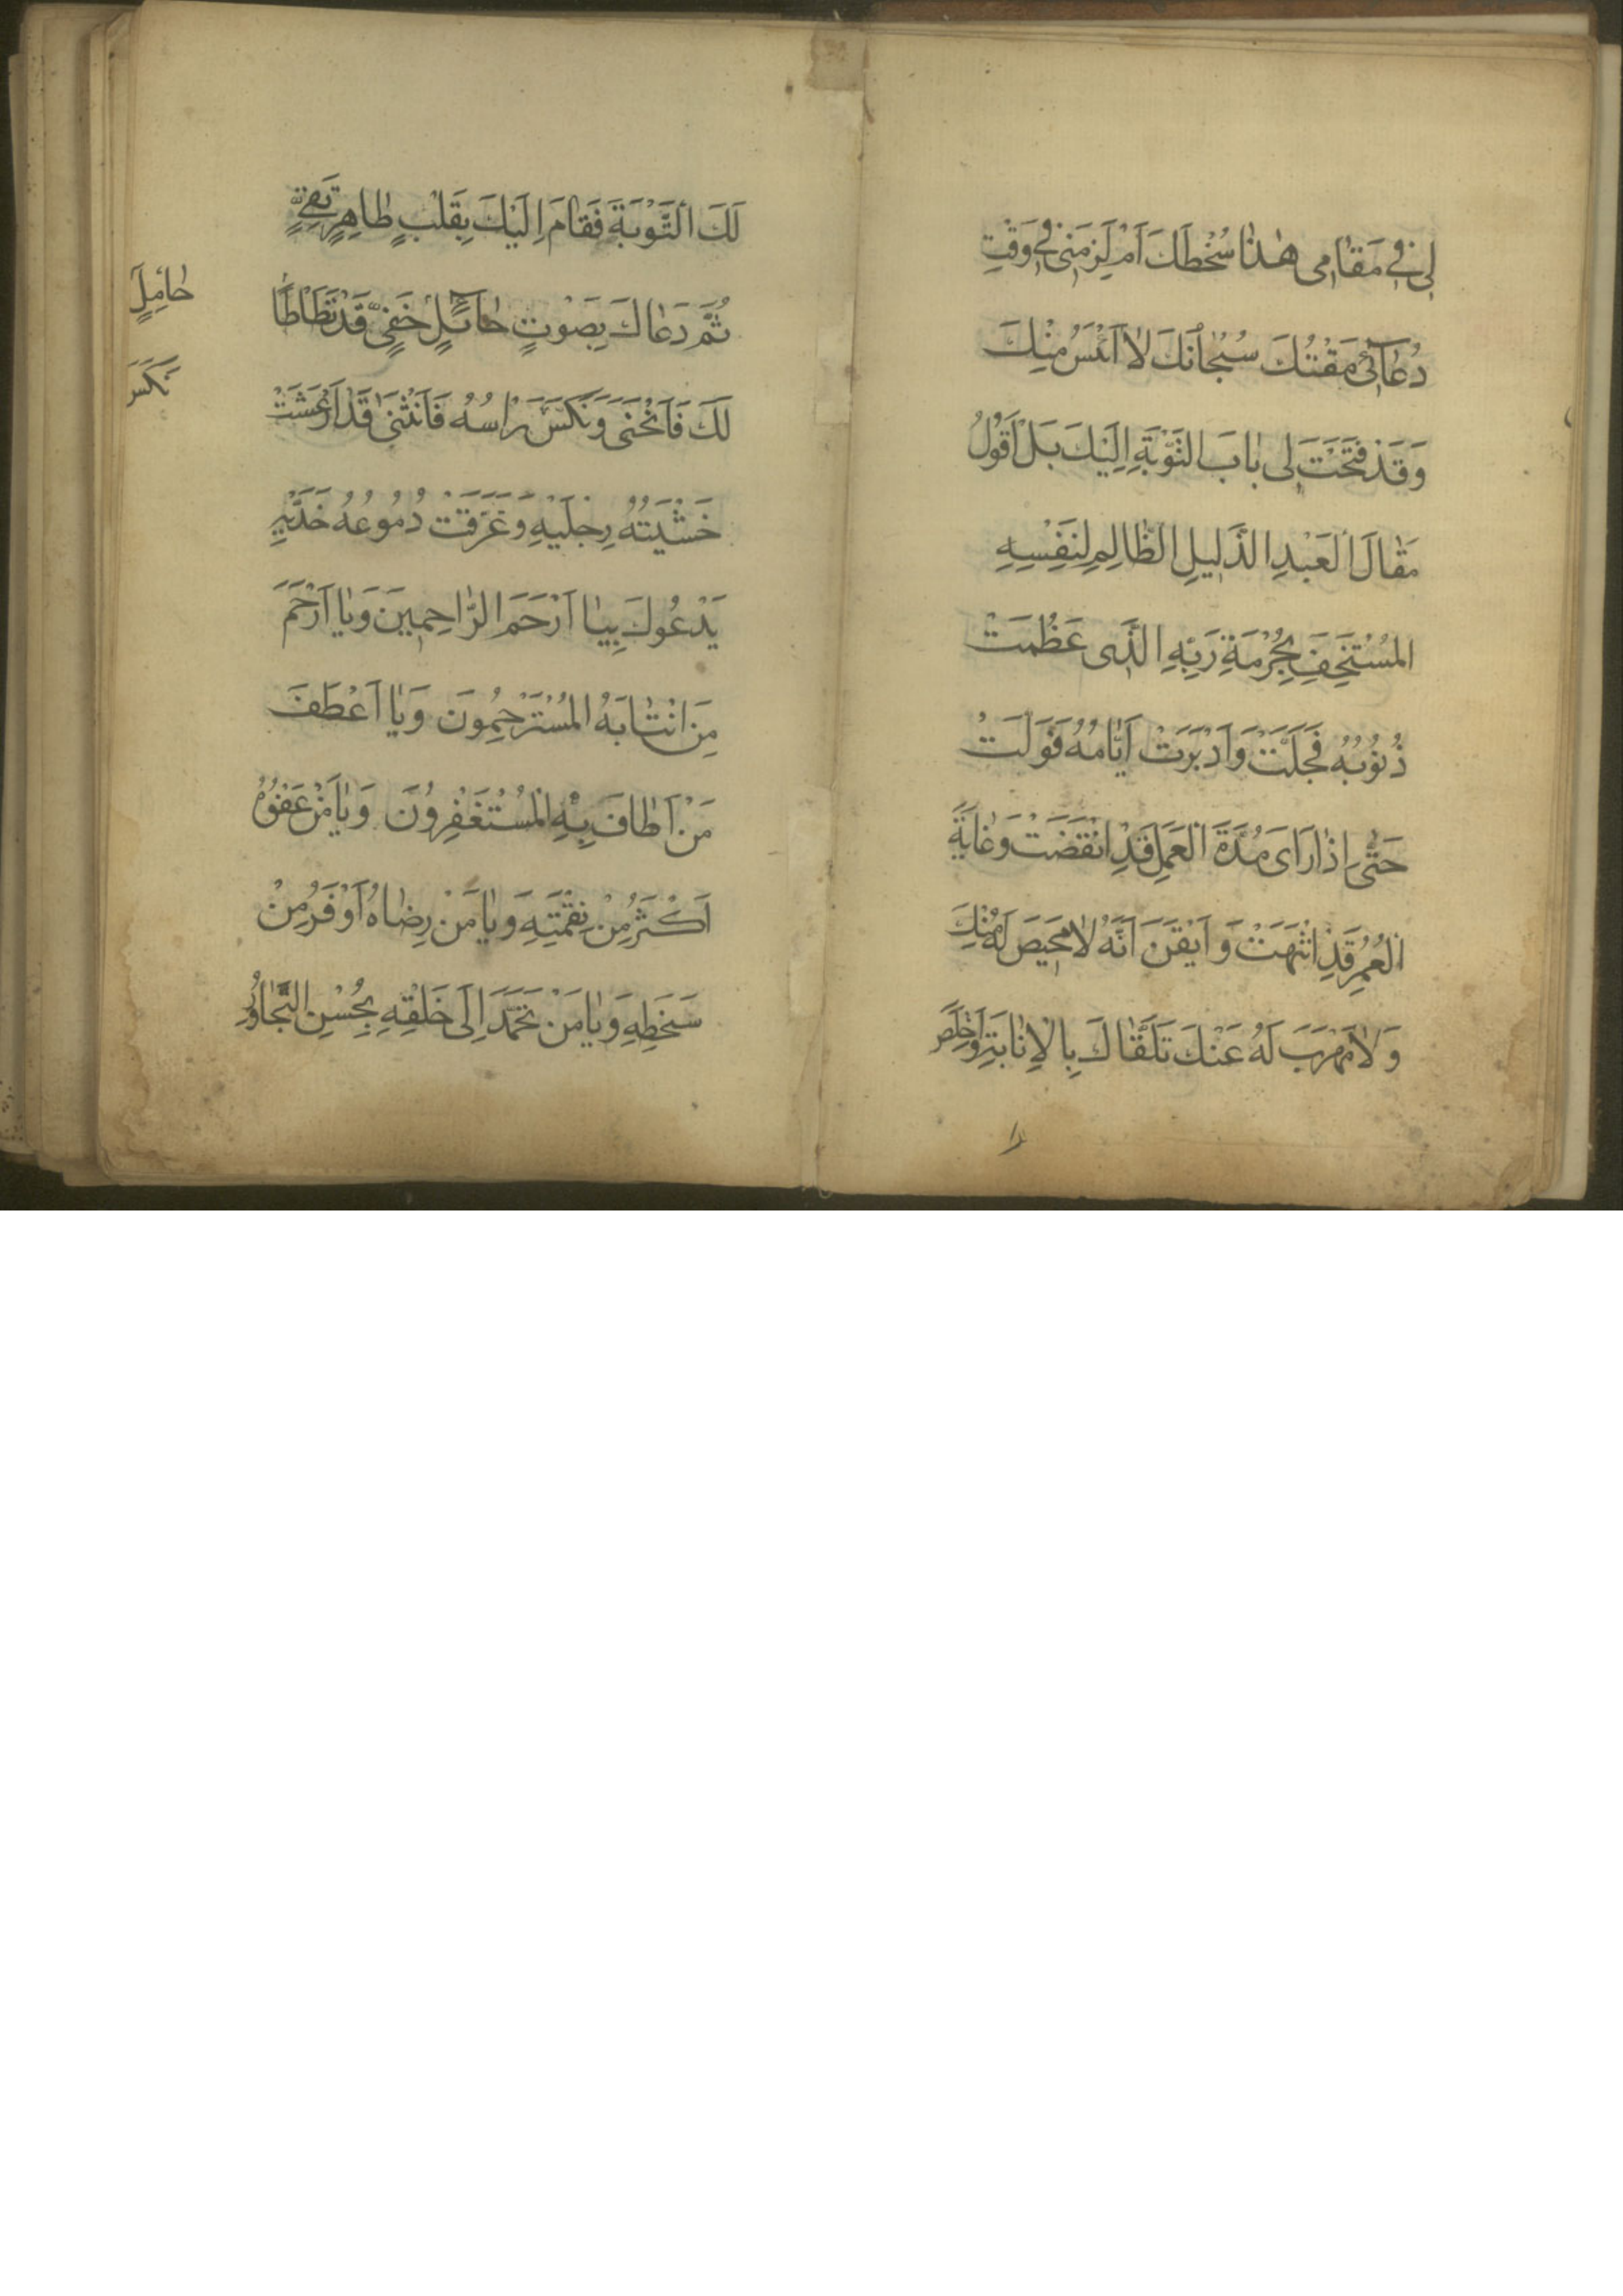 لِی فِی مَقَامِی هٰذَا سُخْطَكَ اَمْ لَزِمَنِی فِی وَقْتِ
دُعَآئِی مَقْتُكَ سُبْحَانَكَ لَا اَيْئَسُ مِنْكَ
وَقَدْ فَتَحْتَ لِی بَابَ التَّوْبَةِ اِلَيْكَ بَلْ اَقُولُ
مَقَالَ الْعَبْدِ الذَّلِيلِ الظَّالِمِ لِنَفْسِهِ
الْمُسْتَخِفِّ بِحُرْمَةِ رَبِّهِ الَّذِی عَظُمَتْ
ذُنُوبُهُ فَجَلَّتْ وَاَدْبَرَتْ اَيَّامُهُ فَوَلَّتْ
حَتّٰی اِذَا رَاَی مُدَّةَ الْعَمَلِ قَدِ انْقَضَتْ وَغَايَةَ
الْعُمُرِ قَدِ انْتَهَتْ وَ اَيْقَنَ اَنَّهُ لَا مَحِيصَ لَهُ مِنْكَ
وَلَا مَهْرَبَ لَهُ عَنْكَ تَلَقَّاكَ بِالْاِنَابَةِ وَاَخْلَصَ
لَكَ التَّوْبَةَ فَقَامَ اِلَيْكَ بِقَلْبٍ طَاهِرٍ نَقِیٍّ
ثُمَّ دَعَاكَ بِصَوْتٍ حَآئِلٍ خَفِیٍّ قَدْ تَطَاْطَاَ
لَكَ فَانْحَنٰی وَنَكَّسَ رَاْسُهُ فَانْثَنٰی قَدْ اَرْعَشَتْ
خَشْيَتُهُ رِجْلَيْهِ وَغَرَّقَتْ دُمُوعُهُ خَدَّيْهِ
يَدْعُوكَ بِيَا اَرْحَمَ الرَّاحِمِينَ وَيَا اَرْحَمَ
مَنِ انْتَابَهُ الْمُسْتَرْحِمُونَ وَيَا اَعْطَفَ
مَنْ اَطَافَ بِهِ الْمُسْتَغْفِرُونَ وَيَا مَنْ عَفْوُهُ
اَكْثَرُ مِنْ نِقْمَتِهِ وَيَا مَنْ رِضَاهُ اَوْفَرُ مِنْ
سَخَطِهِ وَيَا مَنْ تَحَمَّدَ اِلٰی خَلْقِهِ بِحُسْنِ التَّجَاوُزِ
نَكَسَ